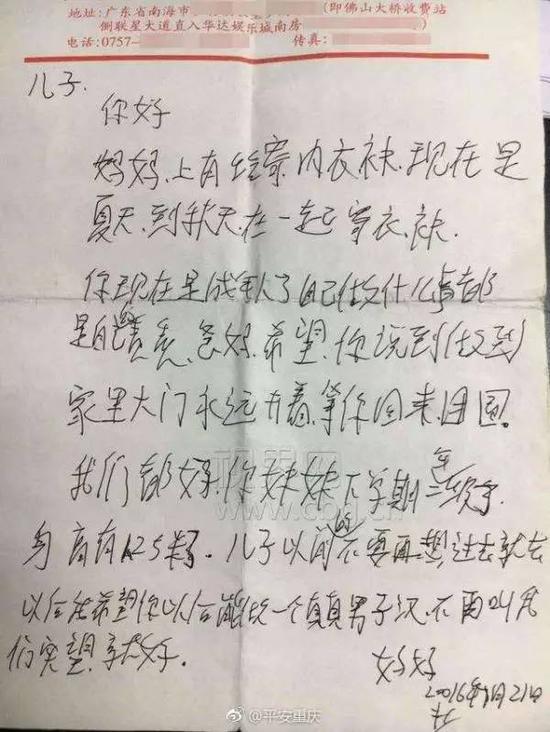 地址:广东省南海市 (即佛山大桥收费站
侧联星大道直入华达娱乐城南房
电话:0757- 传真:
儿子.
你好
妈妈.上有给寄.内衣袜.现在是
夏天.到秋天.在一起寄衣.袜.
你现在是成年人了自己做什么事都
是自己负责.爸妈.希望.你说到做到
家里大门永远开着.等你回来.团圆。
我们都好.你妹妹下学期三年级了.
身高有125了.儿子以前的不要再想过去就去
以后希望你以后能做一个真真男子汉.不要叫我
们失望.就好.
妈妈
20016年 月21日
@平安重庆